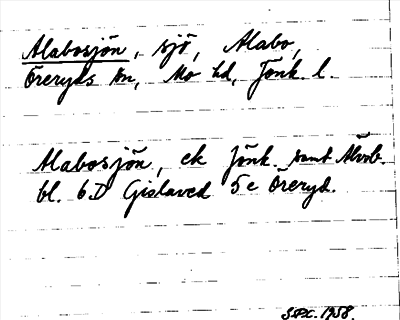 Alabosjön, sjö, Alabo,
Öreryds sn, Mo hd, Jönk. l.
Alabosjön, ek Jönk. samt Älvsb.
bl. 6D Gislaved 5e Öreryd.
1958.